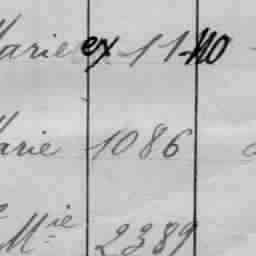 Marie ex 1140
Marie 1086
Mie 2389